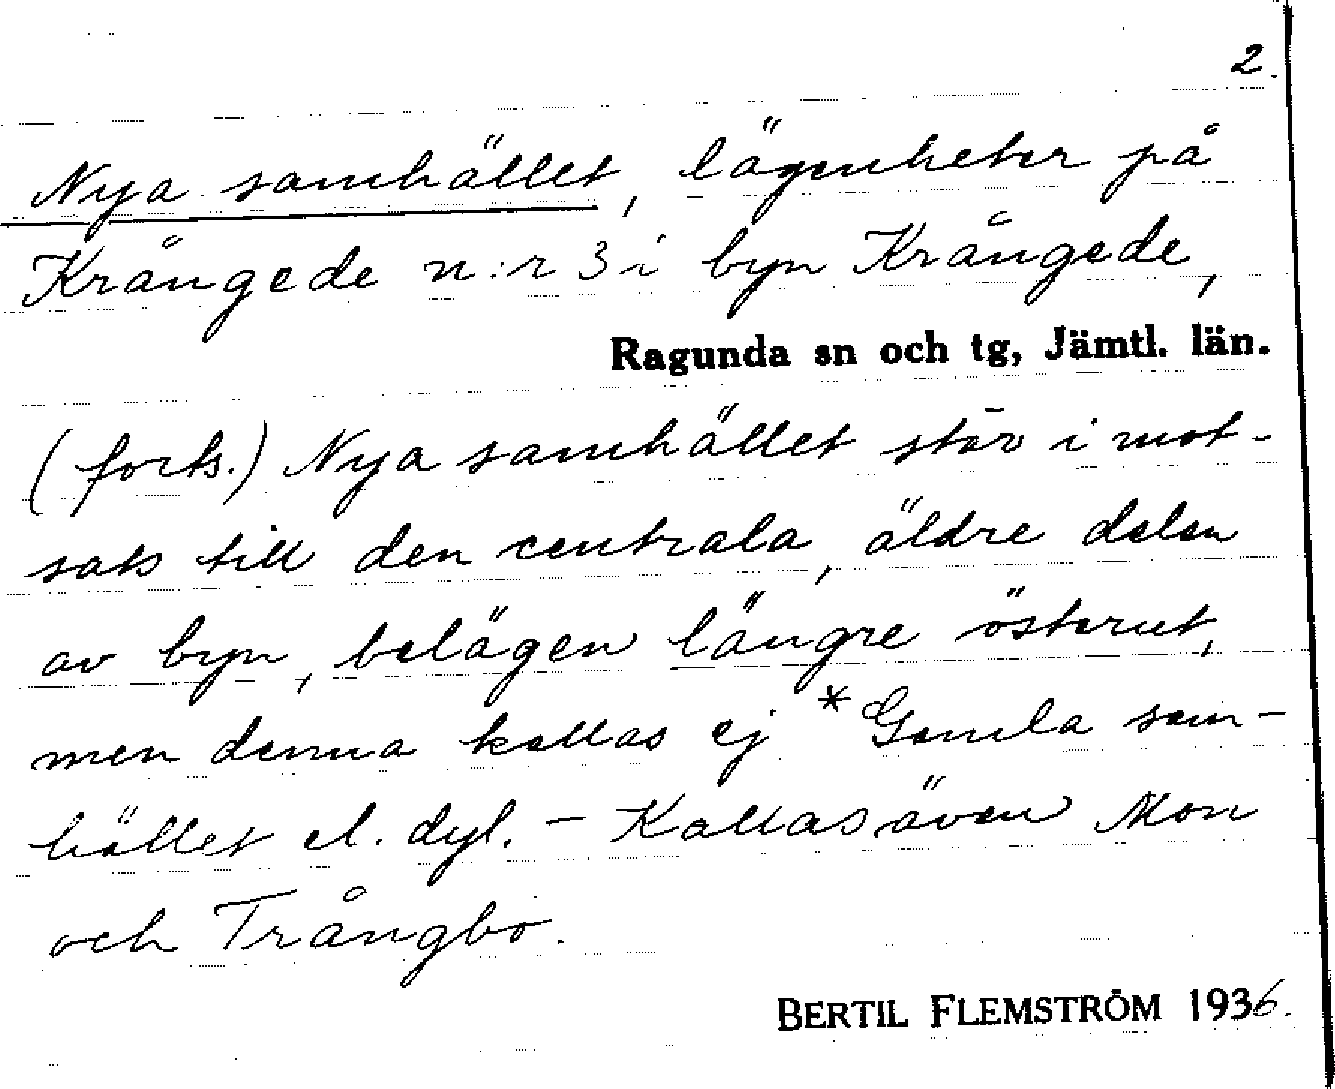 2.
Nya samhället, lägenheter på
Krångede n:r 3 i byn Krångede,
Ragunda sn och tg, Jämtl. län.
(forts.) Nya samhället står i mot-
sats till den centrala, äldre delen
av byn, belägen längre österut,
men denna kallas ej *Gamla sam-
hället el. dyl. - Kallas även Mon
och Trångbo.
BERTIL FLEMSTRÖM 1936.